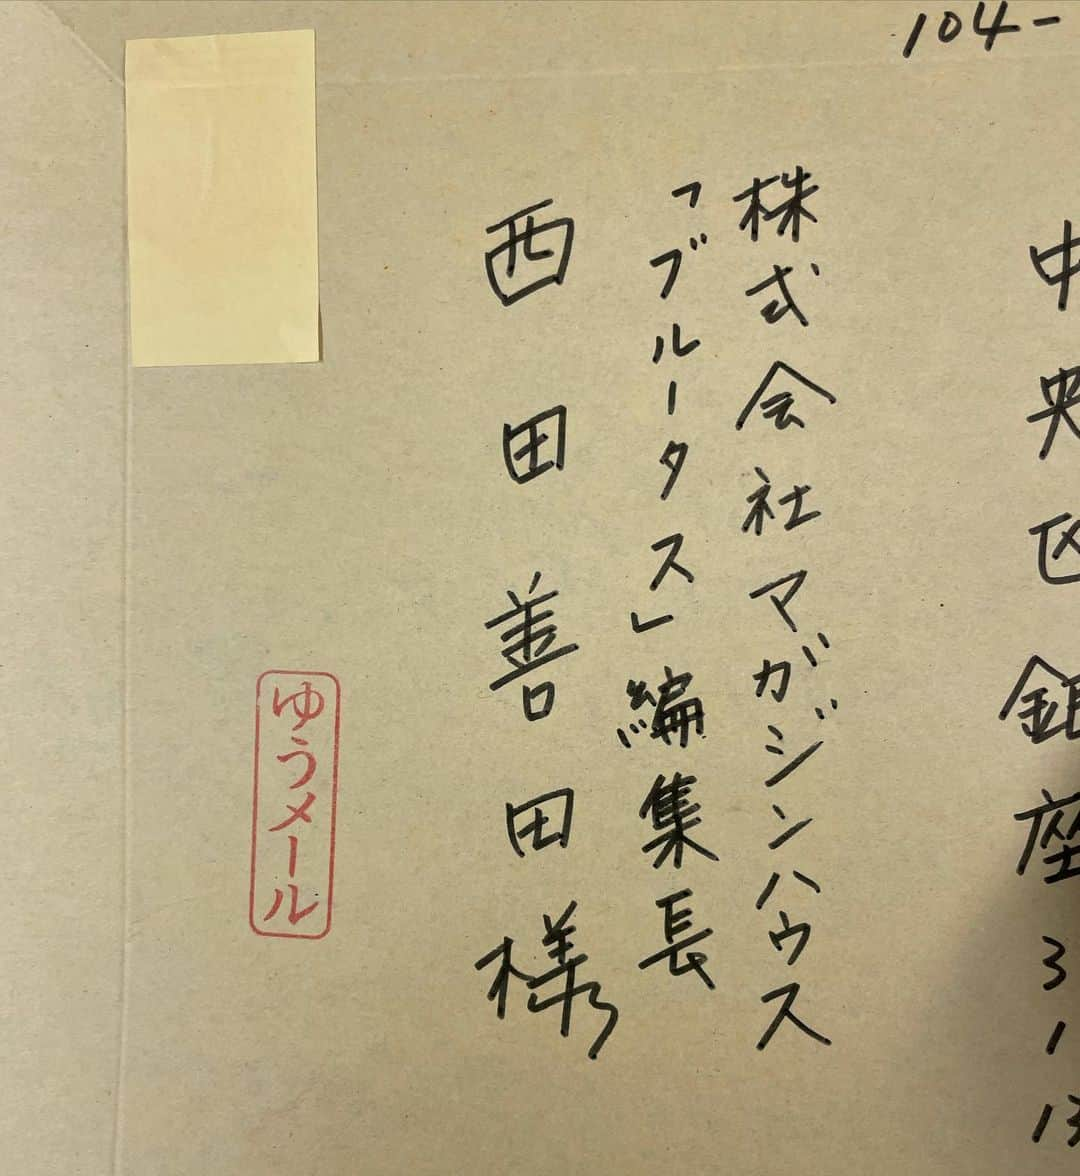 104-
中央区銀座3-13
株式会社マガジンハウス
「ブルータス」編集長
西田善田様
ゆうメール